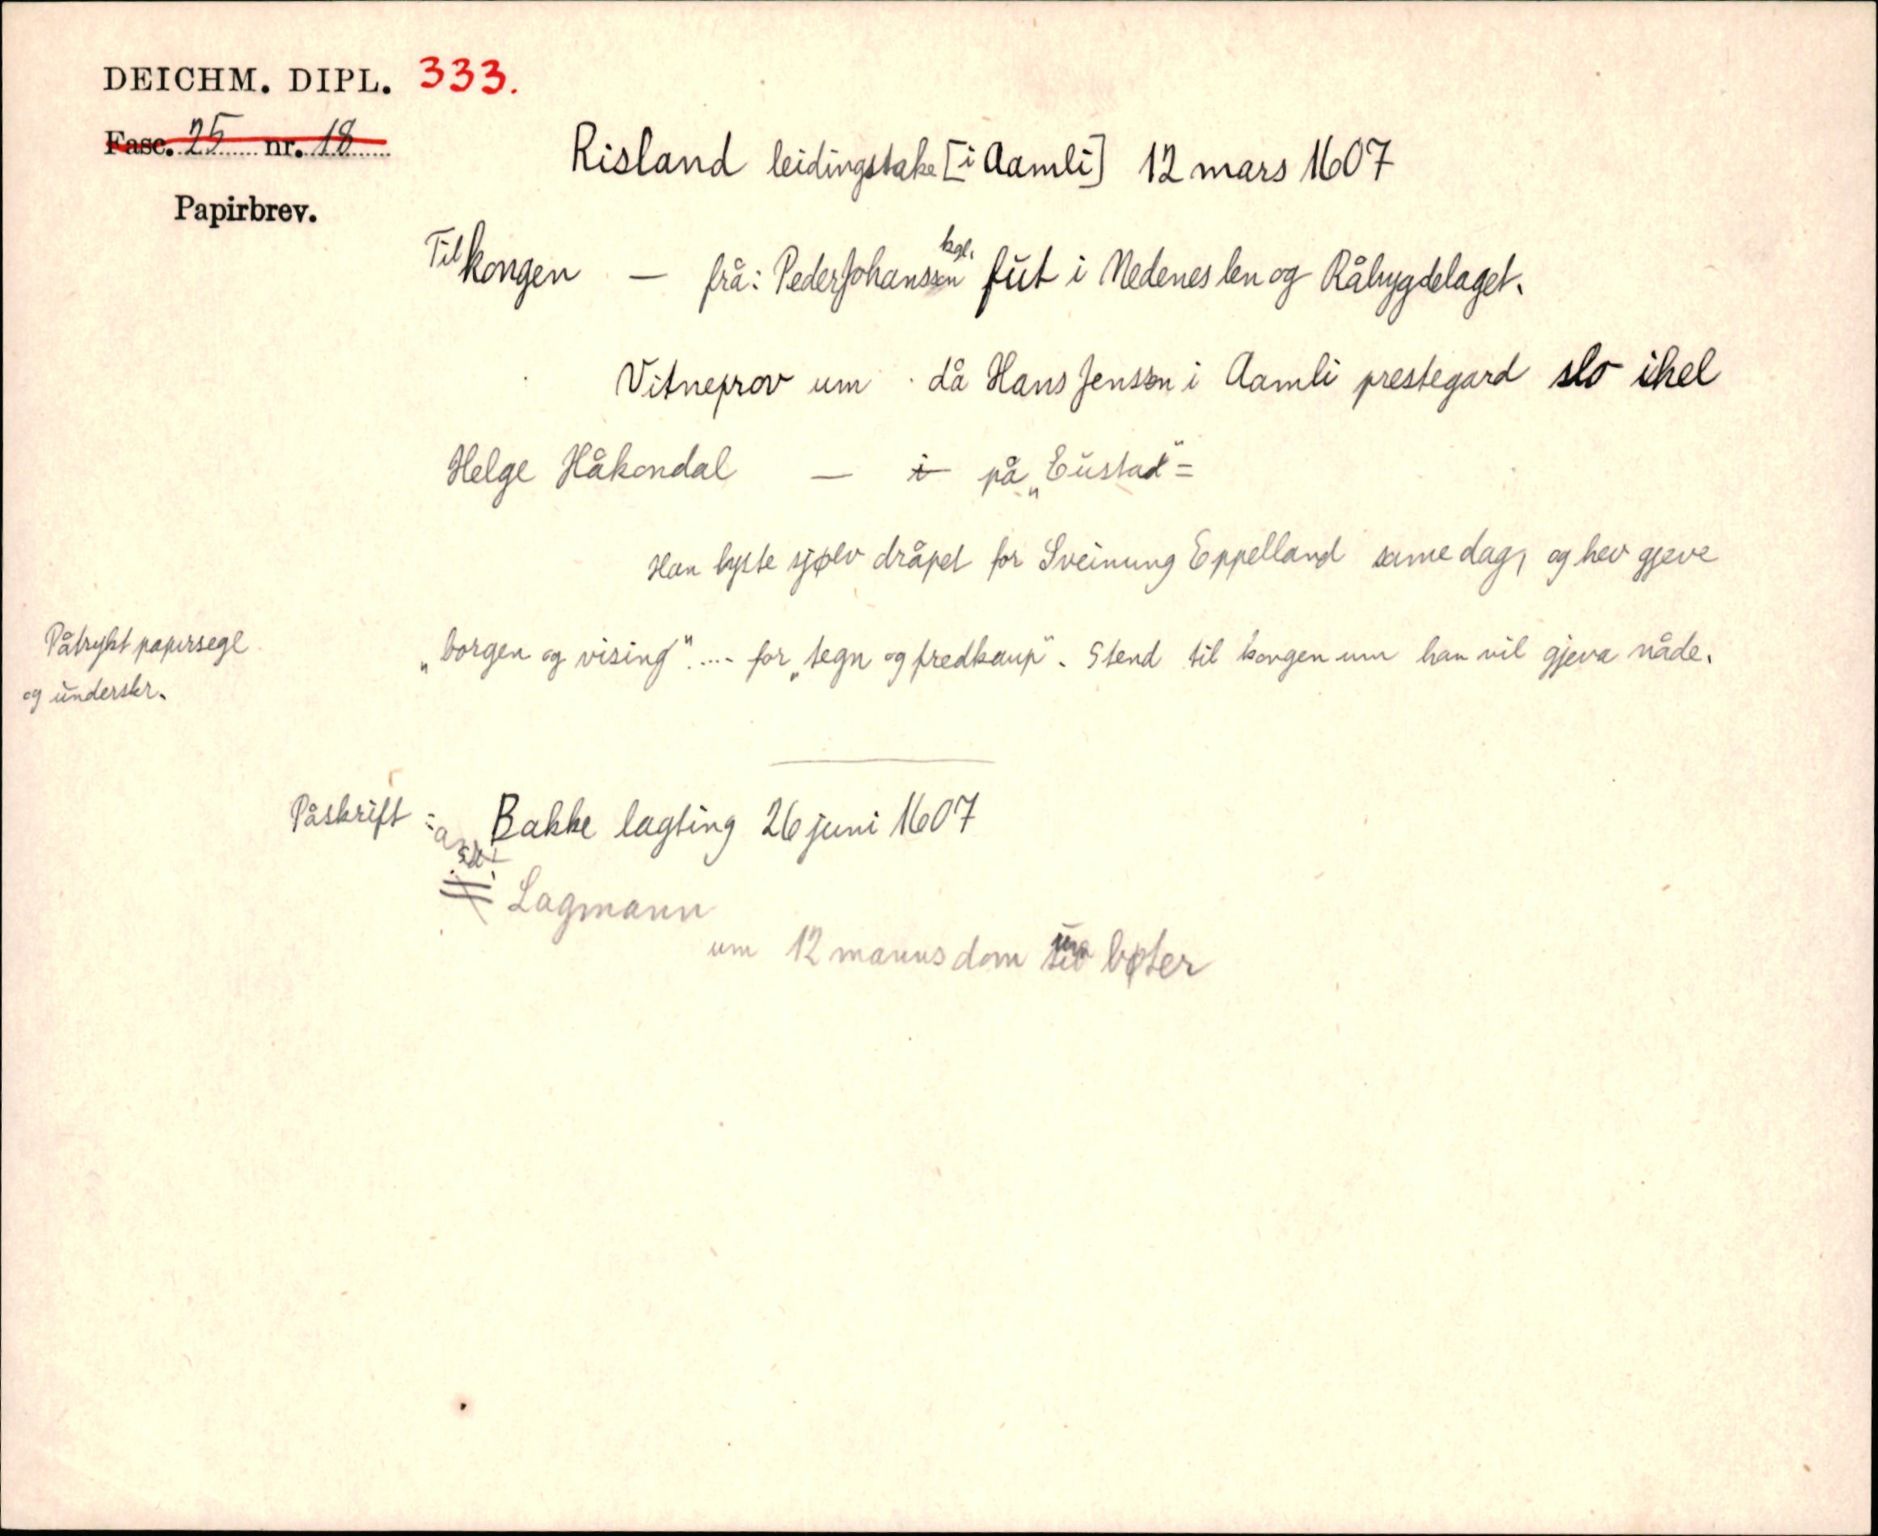 DEICHM. DIPL. 333.
Fasc. 25 nr. 18
Papirbrev.
Risland leidingstake [i Aamli] 12 mars 1607
Til kongen — frå: Peder Johanssen kgl. fut i Nedenes len og Råbygdelaget.
Vitneprov um då Hans Jenssen i Aamli prestegard slo ihel
Helge Håkondal — i på „Eustad" =
Han lyste sjølv dråpet for Sveinung Eppelland same dag, og hev gjeve
„borgen og vising" .... for „tegn og fredkaup". Stend til kongen um han vil gjeva nåde.
Påtrykt papirsegl
og underskr.
Påskrift: Bakke lagting 26 juni 1607
Lagmann
um 12 manns dom um bøter